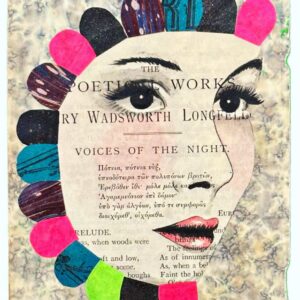 THE
WORKS
RY WADSWORTH LONGFELL
VOICES OF THE NIGHT.
Πότνια, πότνια νύξ,
ὑπνοδότειρα τῶν πολυπόνων βροτῶν,
Ἐρεβόθεν ἴθι· μόλε μόλε
Ἀγαμεμνόνιον ἐπὶ δόμον·
ὑπὸ γὰρ ἀλγέων, ὑπό τε συμφορᾶς
διοιχόμεθ', οἰχόμεθα.
EUR
RELUDE.
when woods were
The
As of
and low,
As, when a
some,
Faint the
boughs